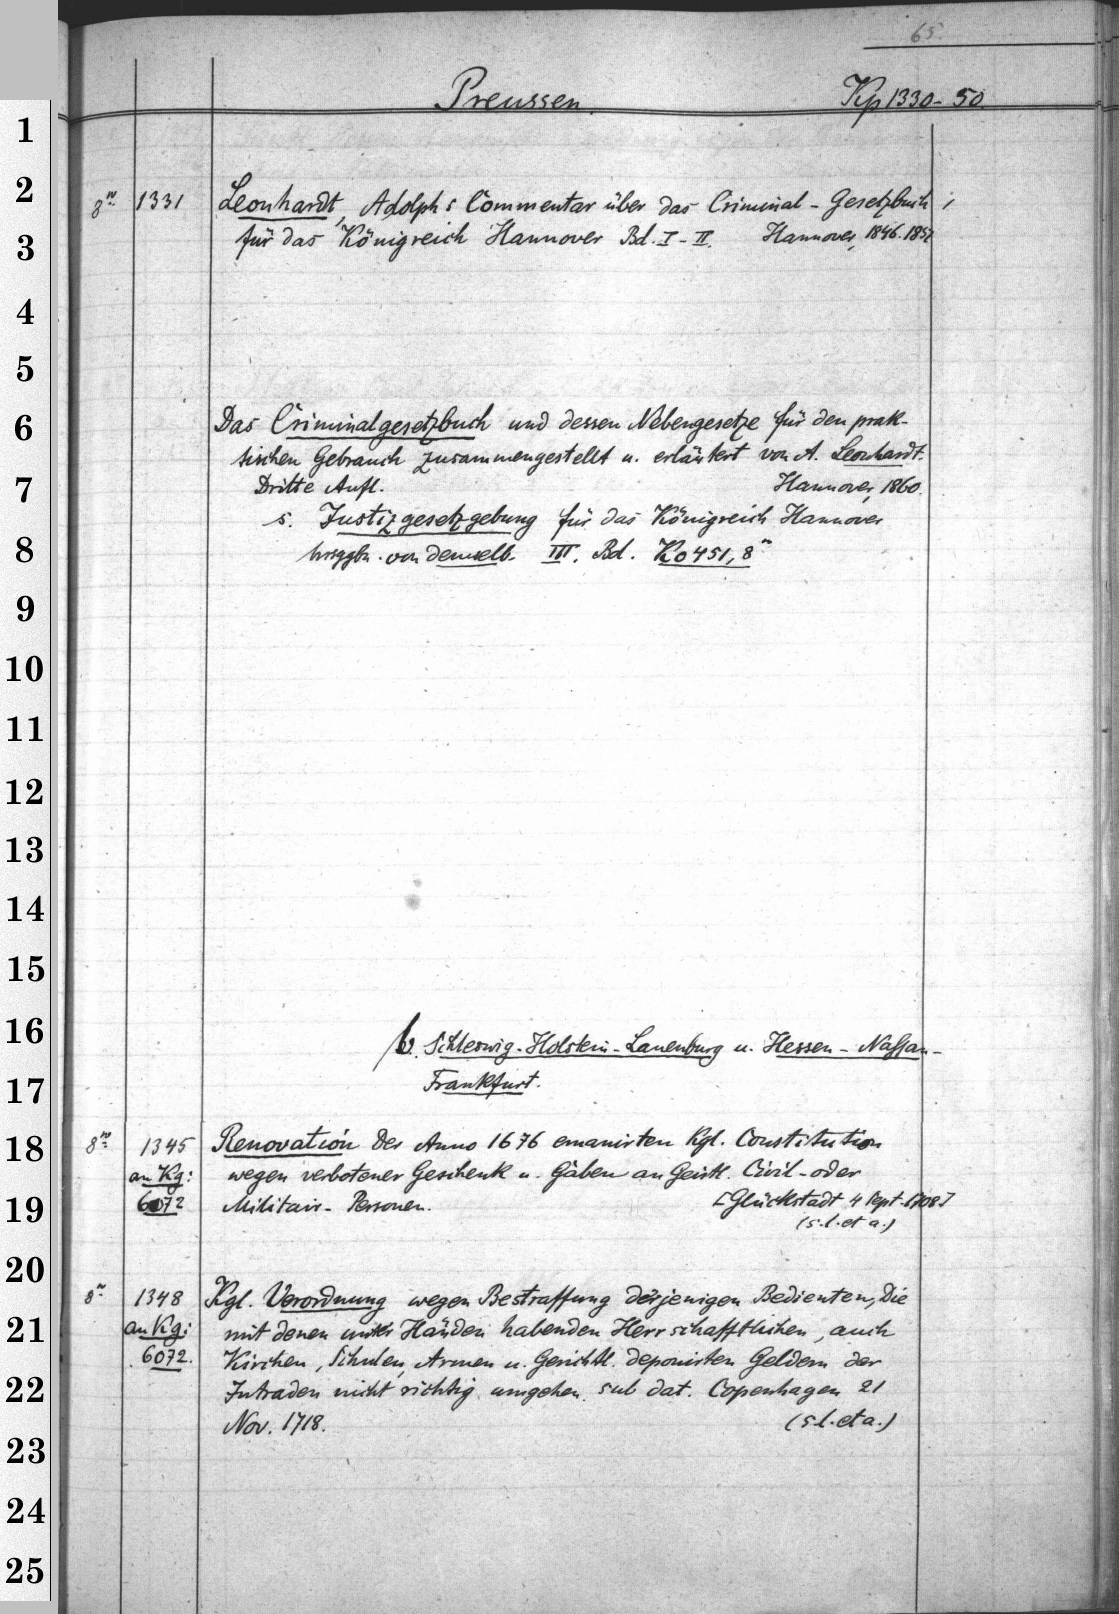 65.
Preussen. Kp 1330-50.
1
2
8º 1331 Leonhardt, Adolph: Commentar über das Criminal-Gesetzbuch
3
für das Königreich Hannover Bd. I-II. Hannover, 1846. 1851
4
5
6
Das Criminalgesetzbuch und dessen Nebengesetze für den prak-
tischen Gebrauch zusammengestellt u. erläutert von A. Leonhardt.
7
Dritte Aufl. Hannover, 1860.
s. Justizgesetzgebung für das Königreich Hannover
8
hrsggbn. von demselb. III. Bd. Ko 451, 8º
9
10
11
12
13
14
15
16
b. Schleswig-Holstein-Lauenburg u. Hessen-Nassau-
17
Frankfurt.
18
8º 1345 Renovation der Anno 1676 emanirten Kgl. Constitution
an Kg: wegen verbotener Geschenk u. Gaben an Geistl. Civil- oder
19
6072 Militair-Personen. [Glückstadt 4 Sept. 1708]
(s.l. et a.)
20
8º 1348 Kgl. Verordnung wegen Bestraffung derjenigen Bedienten, die
21
an Kg: mit denen unter Händen habenden Herrschafftlichen, auch
6072. Kirchen, Schulen, Armen u. Gerichtl. deponirten Geldern der
22
Intraden nicht richtig umgehen. sub dat. Copenhagen 21
Nov. 1718. (s.l. et a.)
23
24
25